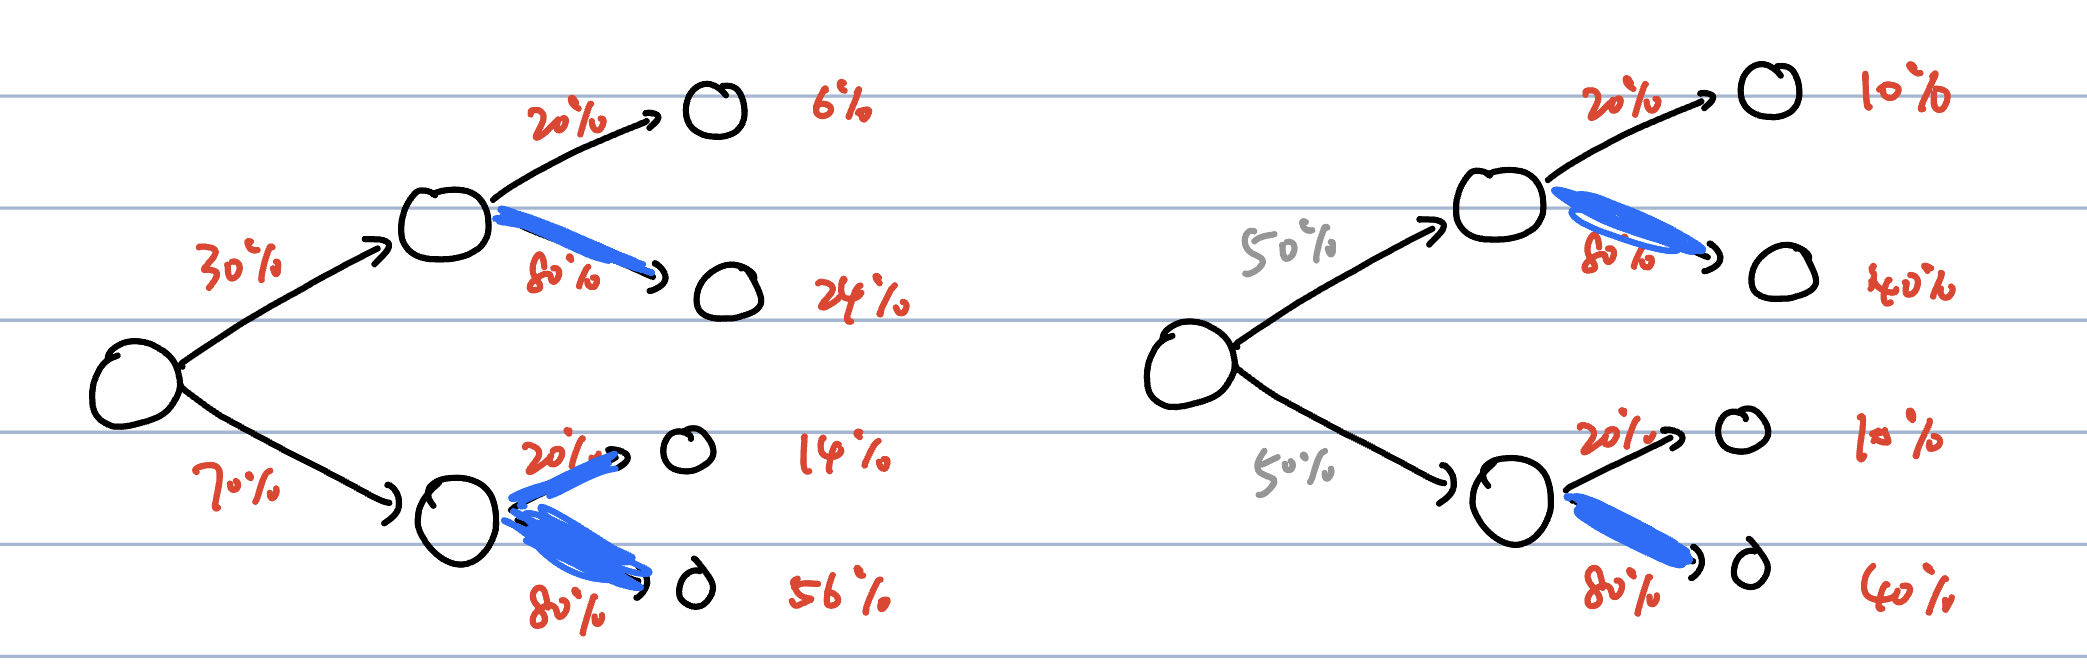 20%
6%
30%
80%
24%
70%
20%
14%
80%
56%
20%
10%
50%
80%
40%
50%
20%
10%
80%
40%